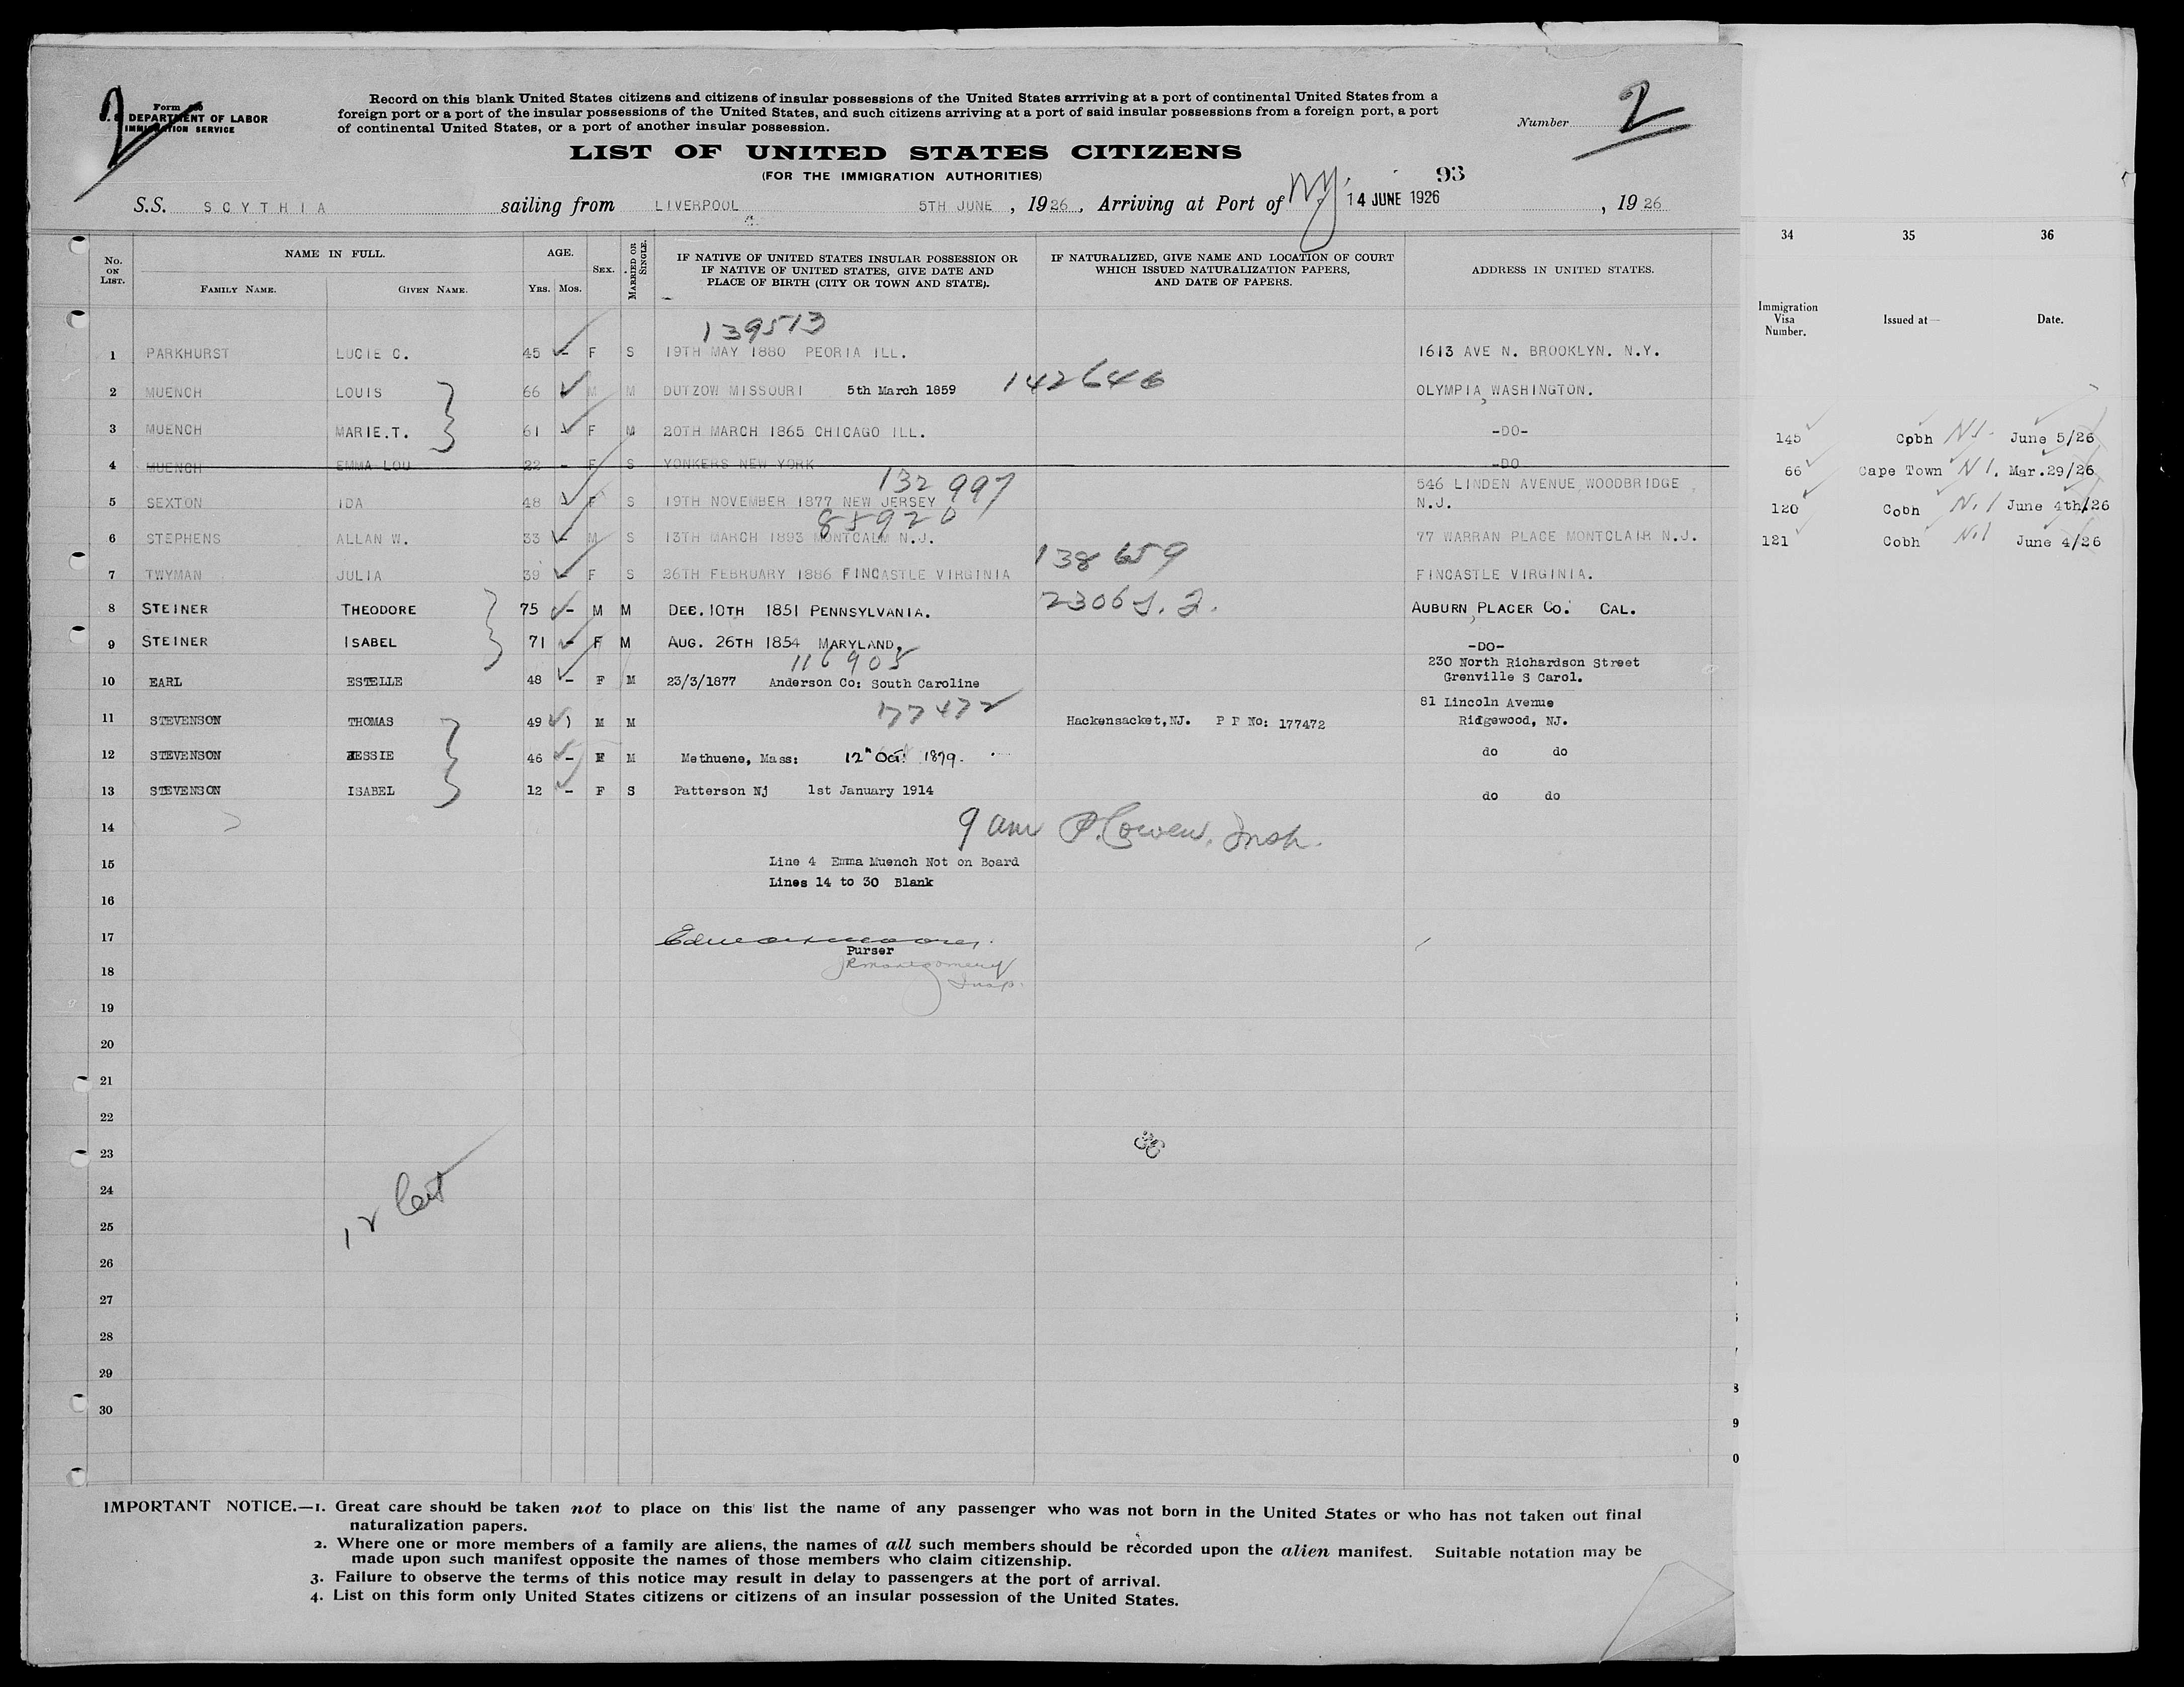 2
Form 630
U. S. DEPARTMENT OF LABOR
IMMIGRATION SERVICE
Record on this blank United States citizens and citizens of insular possessions of the United States arrriving at a port of continental United States from a
foreign port or a port of the insular possessions of the United States, and such citizens arriving at a port of said insular possessions from a foreign port, a port
of continental United States, or a port of another insular possession.
Number 2
LIST OF UNITED STATES CITIZENS
(FOR THE IMMIGRATION AUTHORITIES)
93
S.S. SCYTHIA sailing from LIVERPOOL 5TH JUNE, 1926, Arriving at Port of N.Y. 14 JUNE 1926, 1926
No. ON LIST. NAME IN FULL. FAMILY NAME. GIVEN NAME. AGE. YRS. MOS. SEX. MARRIED OR SINGLE. IF NATIVE OF UNITED STATES INSULAR POSSESSION OR IF NATIVE OF UNITED STATES, GIVE DATE AND PLACE OF BIRTH (CITY OR TOWN AND STATE). IF NATURALIZED, GIVE NAME AND LOCATION OF COURT WHICH ISSUED NATURALIZATION PAPERS, AND DATE OF PAPERS. ADDRESS IN UNITED STATES.
34 35 36
Immigration Visa Number. Issued at— Date.
139513
1 PARKHURST LUCIE C. 45 - F S 19TH MAY 1880 PEORIA ILL. 1613 AVE N. BROOKLYN. N.Y.
2 MUENCH LOUIS 66 M M DUTZOW MISSOURI 5th March 1859 142646 OLYMPIA, WASHINGTON.
3 MUENCH MARIE.T. 61 - F M 20TH MARCH 1865 CHICAGO ILL. -DO-
145 Cobh N.I. June 5/26
4 MUENCH EMMA LOU 22 - F S YONKERS NEW YORK -DO
66 Cape Town N.I. Mar.29/26
132997
5 SEXTON IDA 48 - F S 19TH NOVEMBER 1877 NEW JERSEY 546 LINDEN AVENUE WOODBRIDGE
N.J.
120 Cobh N.I June 4th/26
85920
6 STEPHENS ALLAN W. 33 - M S 13TH MARCH 1893 MONTCALM N.J. 77 WARRAN PLACE MONTCLAIR N.J.
121 Cobh N.I June 4/26
138659
7 TWYMAN JULIA 39 - F S 26TH FEBRUARY 1886 FINCASTLE VIRGINIA FINCASTLE VIRGINIA.
8 STEINER THEODORE 75 - M M DEC. 10TH 1851 PENNSYLVANIA. AUBURN, PLACER CO. CAL.
9 STEINER ISABEL 71 - F M AUG. 26TH 1854 MARYLAND. -DO-
116905
10 EARL ESTELLE 48 - F M 23/3/1877 Anderson Co: South Caroline 230 North Richardson Street
Grenville S Carol.
177472
11 STEVENSON THOMAS 49 1 M M Hackensacket,NJ. P P No: 177472 81 Lincoln Avenue
Ridgewood, NJ.
12 STEVENSON JESSIE 46 - F M Methuene, Mass: 12th Oct: 1879. do do
13 STEVENSON ISABEL 12 - F S Patterson Nj 1st January 1914 do do
14
9 am P. Cowen, Insp.
15 Line 4 Emma Muench Not on Board
Lines 14 to 30 Blank
16
17
Purser
18 JRMontgomery
Insp.
19
20
21
22
23
24
25
26
27
28
29
30
8
9
0
IMPORTANT NOTICE.—1. Great care should be taken not to place on this list the name of any passenger who was not born in the United States or who has not taken out final
naturalization papers.
2. Where one or more members of a family are aliens, the names of all such members should be recorded upon the alien manifest. Suitable notation may be
made upon such manifest opposite the names of those members who claim citizenship.
3. Failure to observe the terms of this notice may result in delay to passengers at the port of arrival.
4. List on this form only United States citizens or citizens of an insular possession of the United States.